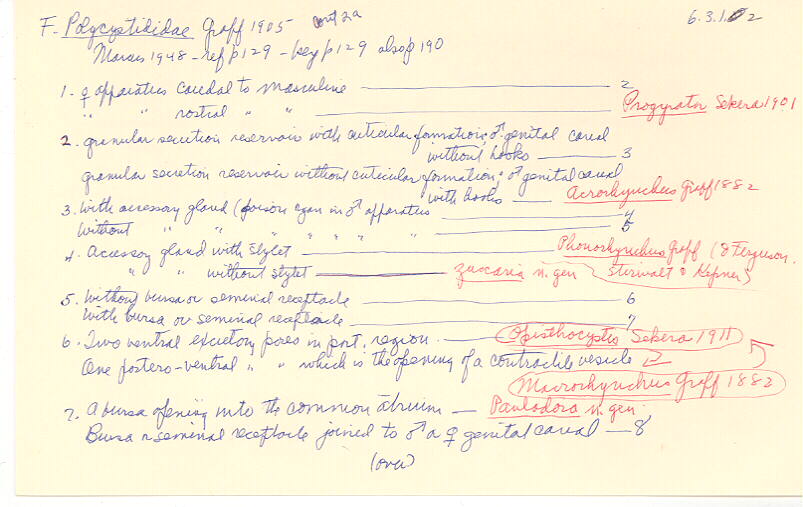 F. Polycystididae Graff 1905 cont 2a 6.3.1.2
Marcus 1948 - ref p129 - key p129 also p190
1. ♀ apparatus caudal to masculine 2
" " rostral " " Progyrator Sekera 1901
2. granular secretion reservoir with cuticular formation; ♂ genital canal
without hooks 3
granular secretion reservoir without cuticular formation; ♂ genital canal
with hooks Acrorhynchus Graff 1882
3. With accessory gland (poison organ in ♂ apparatus 4
Without " " " " " " " 5
4. Accessory gland with stylet Phonorhynchus Graff (& Ferguson,
" " without stylet Zuccaria n. gen Stirwalt & Kepner)
5. Without bursa or seminal receptacle 6
With bursa or seminal receptacle 7
6. Two ventral excretory pores in post. region. Opisthocystis Sekera 1911
One postero-ventral " " which is the opening of a contractile vesicle
Macrorhynchus Graff 1882
7. A bursa opening into the common atrium - Paulodora n. gen
Bursa or seminal receptacle joined to ♂ or ♀ genital canal - 8
(over)